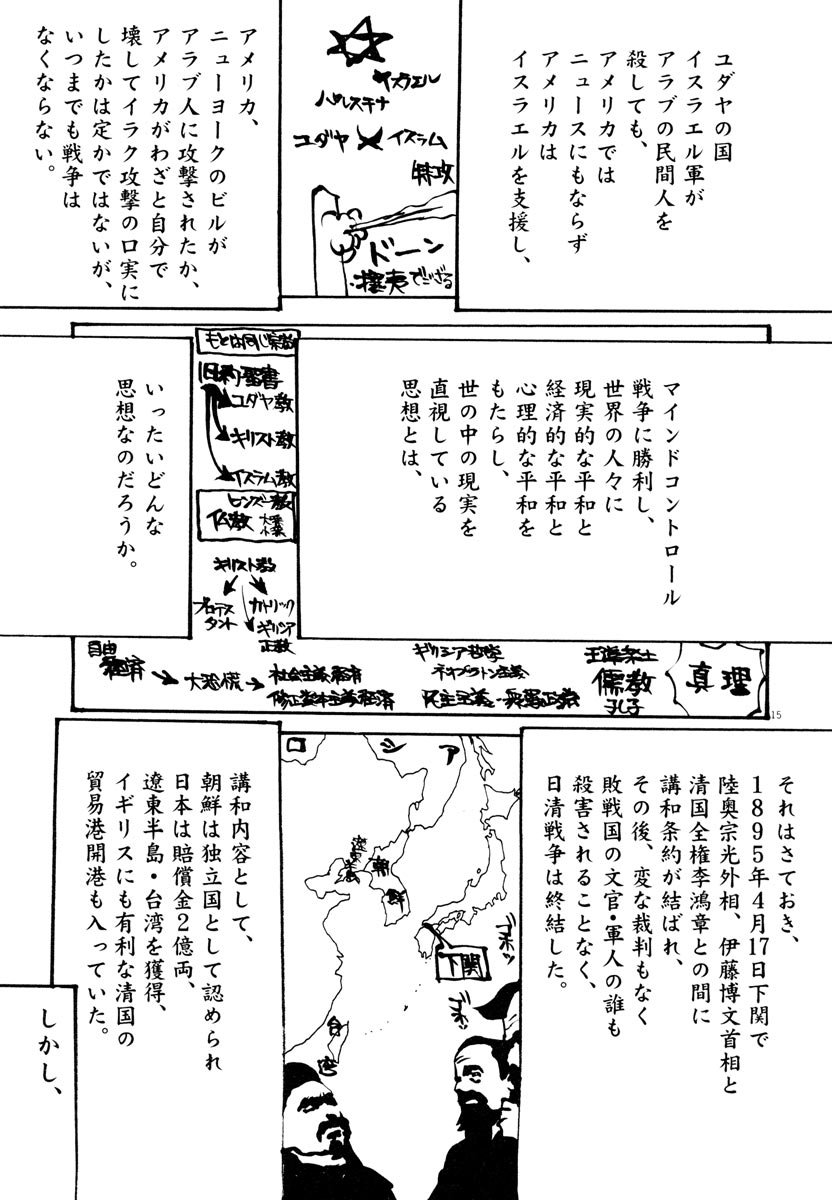 ユダヤの国
イスラエル軍が
アラブの民間人を
殺しても、
アメリカでは
ニュースにもならず
アメリカは
イスラエルを支援し、
イスラエル
パレスチナ
ユダヤ
イスラム
特攻
ドーン
攘夷でござる
アメリカ、
ニューヨークのビルが
アラブ人に攻撃されたか、
アメリカがわざと自分で
壊してイラク攻撃の口実に
したかは定かではないが、
いつまでも戦争は
なくならない。
マインドコントロール
戦争に勝利し、
世界の人々に
現実的な平和と
経済的な平和と
心理的な平和を
もたらし、
世の中の現実を
直視している
思想とは、
もとは同じ宗教
旧約聖書
ユダヤ教
キリスト教
イスラム教
ヒンズー教
仏教
大乗
小乗
キリスト教
プロテス
タント
カトリック
ギリシア
正教
いったいどんな
思想なのだろうか。
真理
王道楽土
儒教
孔子
ギリシア哲学
ネオプラトン主義
民主主義と衆愚政治
自由
経済
大恐慌
社会主義経済
修正資本主義経済
15
それはさておき、
1895年4月17日下関で
陸奥宗光外相、伊藤博文首相と
清国全権李鴻章との間に
講和条約が結ばれ、
その後、変な裁判もなく
敗戦国の文官・軍人の誰も
殺害されることなく、
日清戦争は終結した。
ロシア
遼東半島
朝鮮
下関
台湾
ゴホッ
ゴホッ
講和内容として、
朝鮮は独立国として認められ
日本は賠償金2億両、
遼東半島・台湾を獲得、
イギリスにも有利な清国の
貿易港開港も入っていた。
しかし、